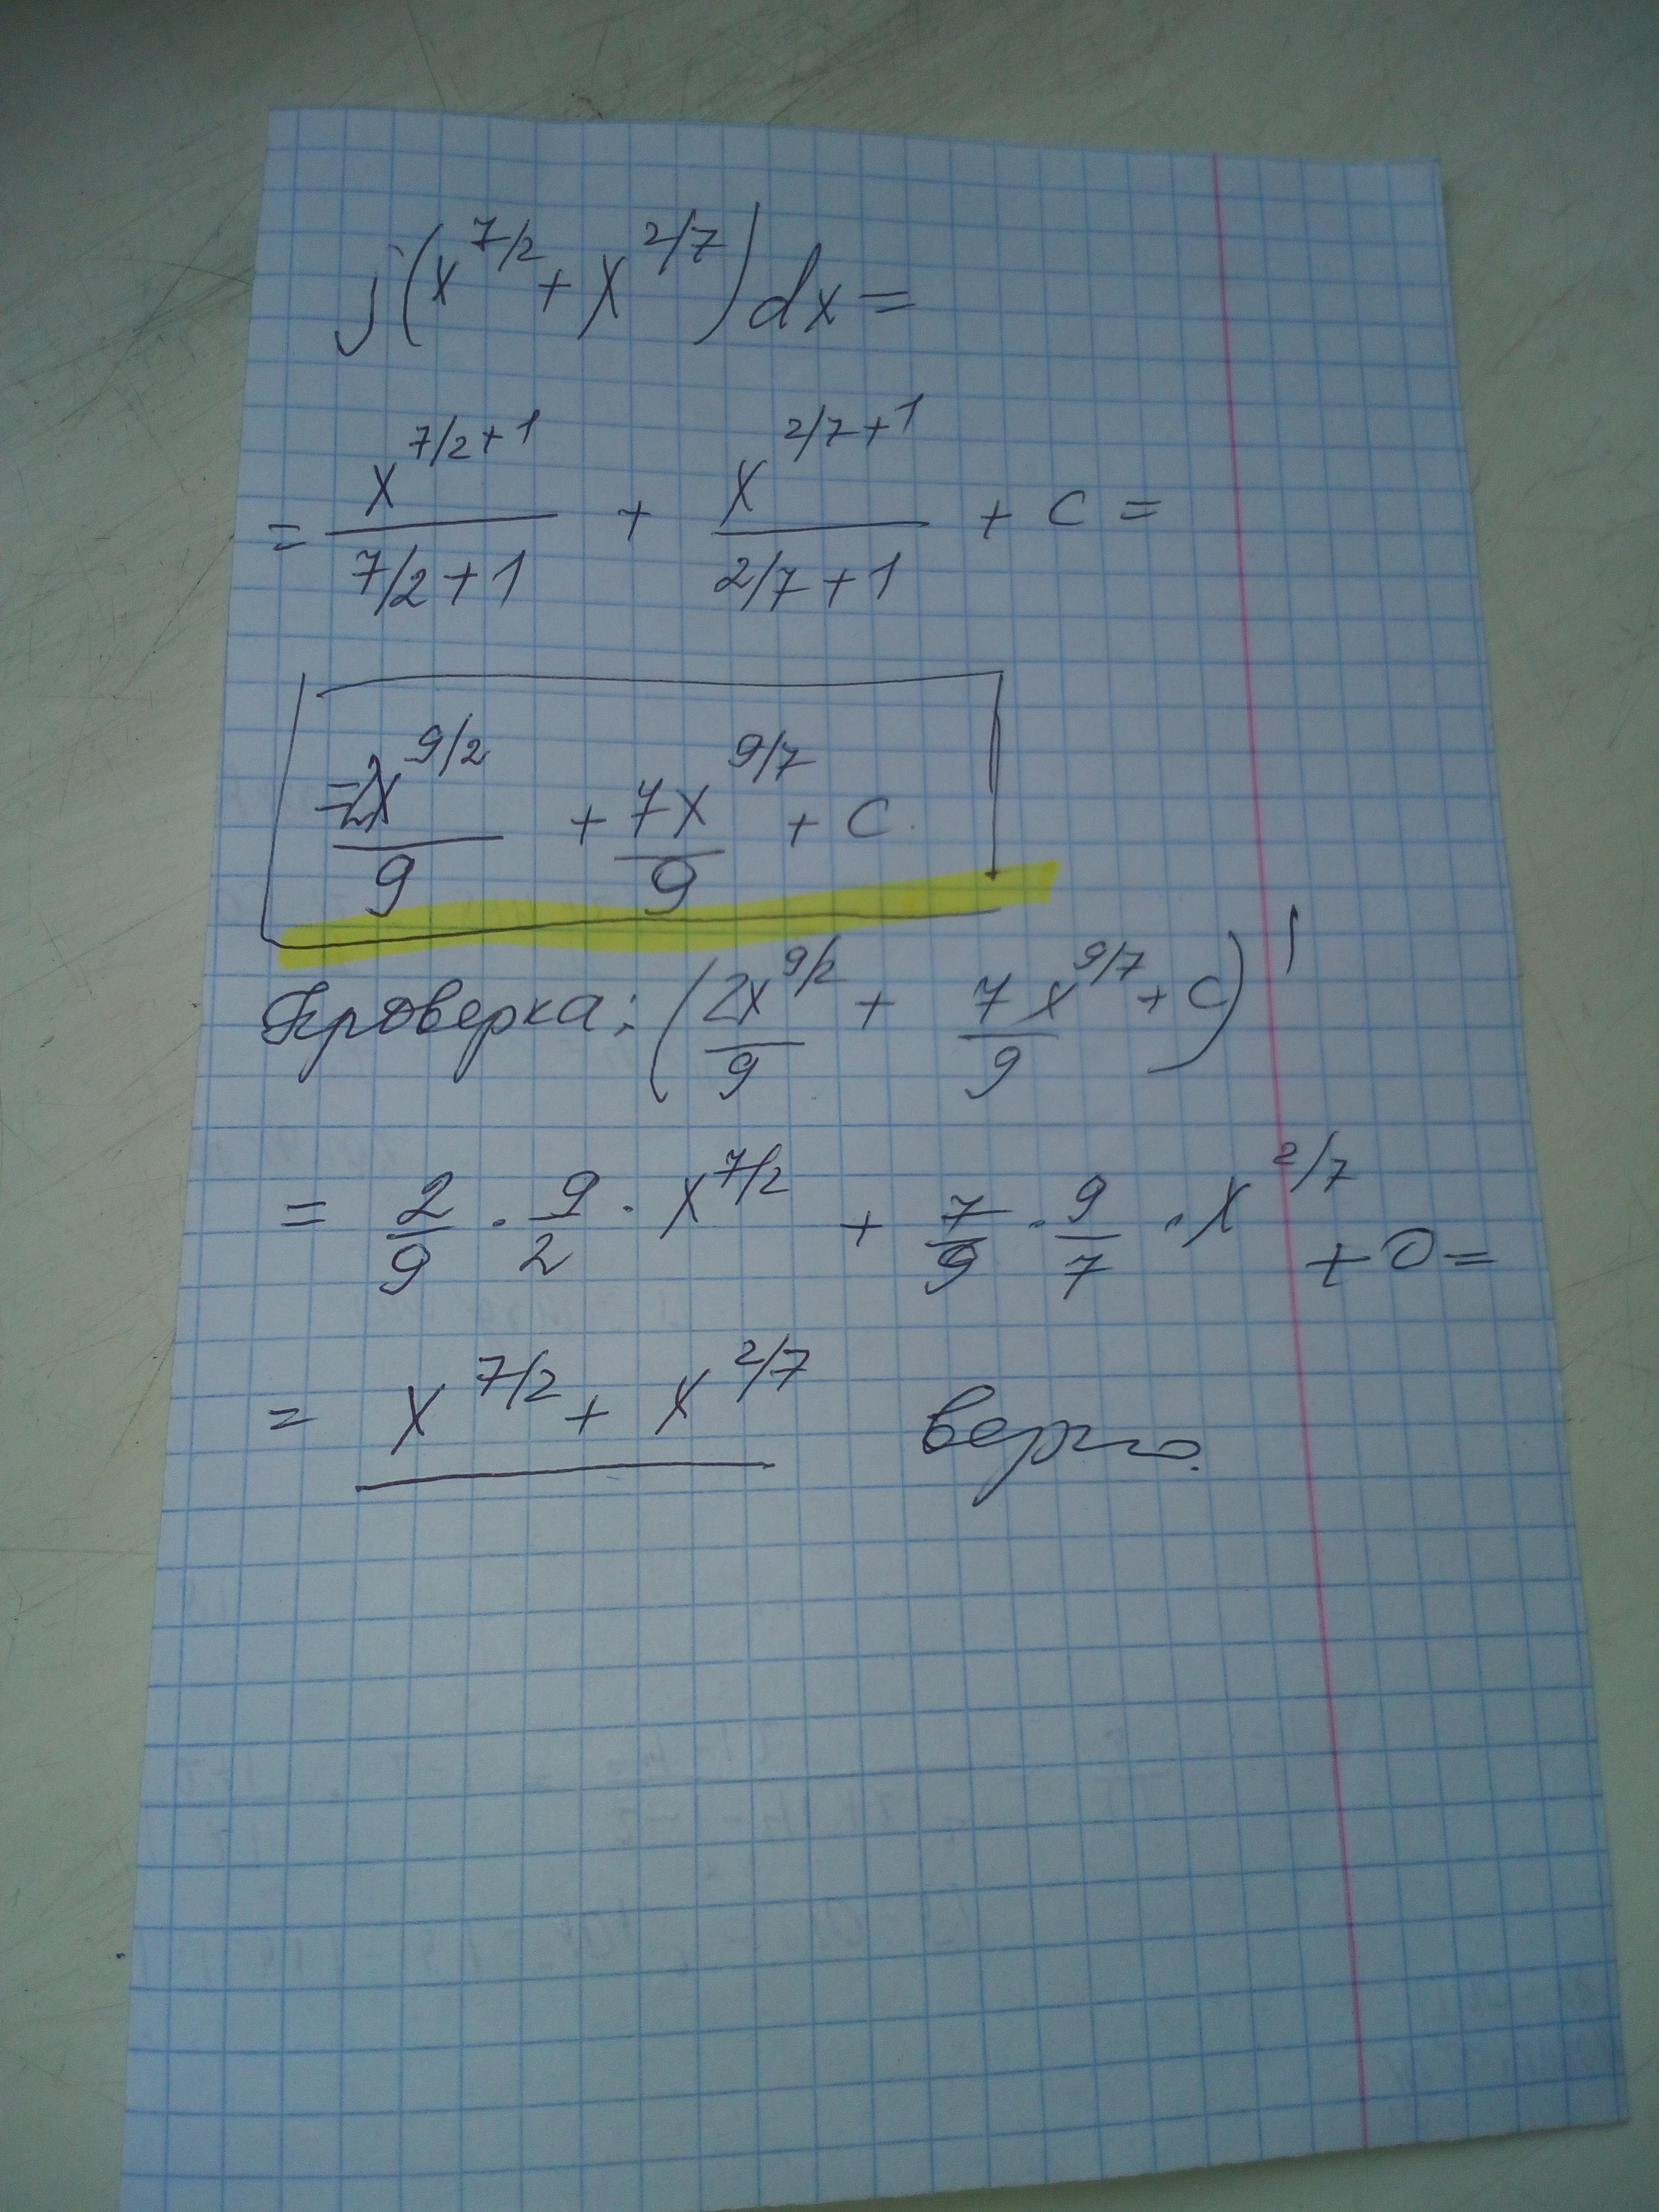 ∫(x^{7/2} + x^{2/7}) dx =
= \frac{x^{7/2+1}}{7/2+1} + \frac{x^{2/7+1}}{2/7+1} + C =
= \frac{2x^{9/2}}{9} + \frac{7x^{9/7}}{9} + C.
Проверка: (\frac{2x^{9/2}}{9} + \frac{7x^{9/7}}{9} + C)'
= \frac{2}{9} · \frac{9}{2} · x^{7/2} + \frac{7}{9} · \frac{9}{7} · x^{2/7} + 0 =
= x^{7/2} + x^{2/7} верно.